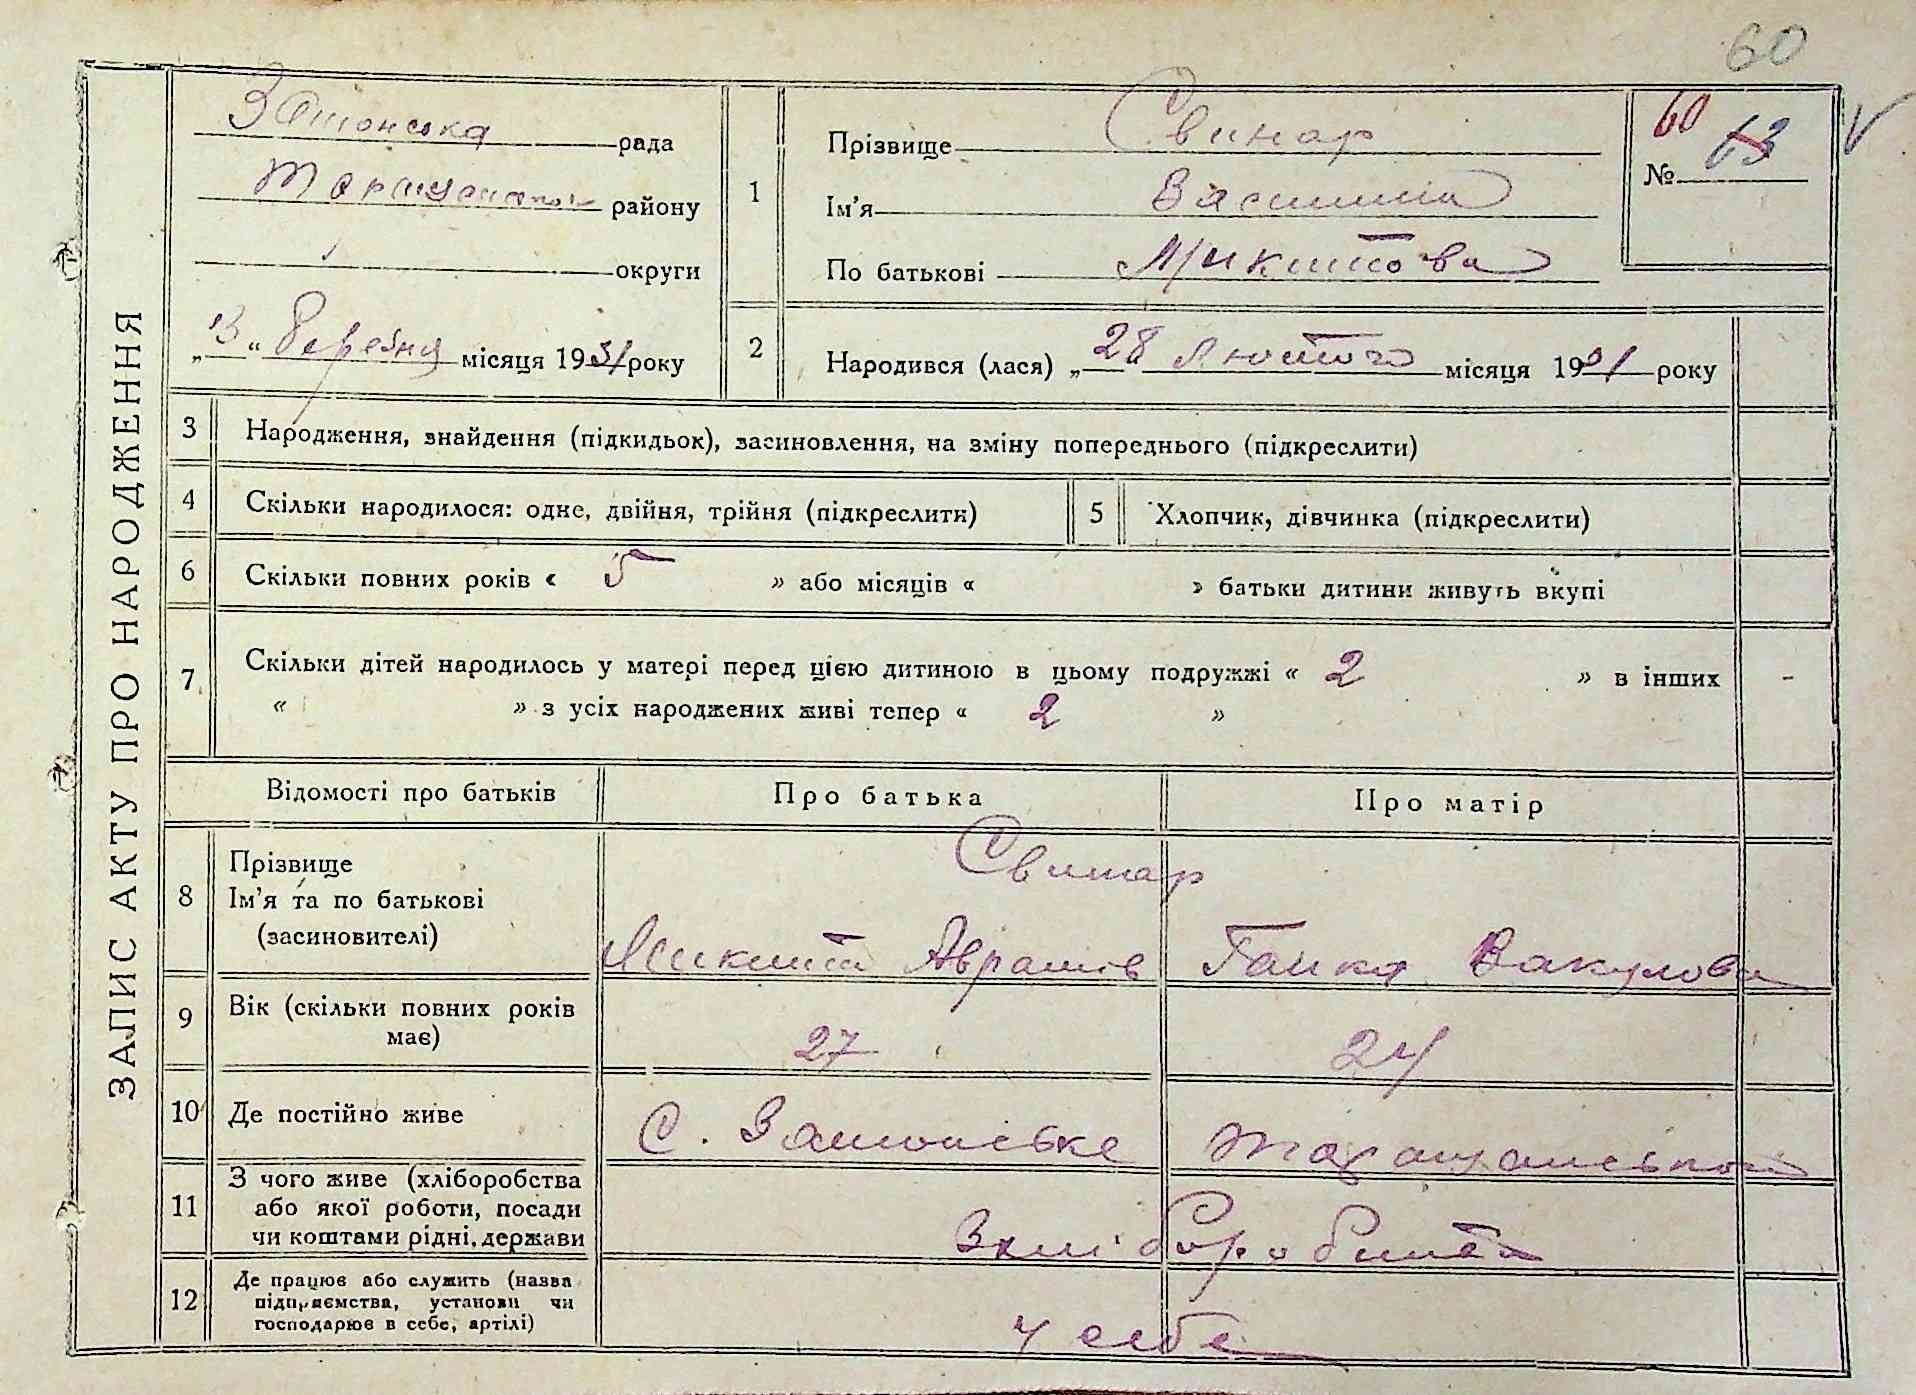 60
ЗАПИС АКТУ ПРО НАРОДЖЕННЯ
рада
району
округи
„13“ березня місяця 1931 року
1
Прізвище Свинар
Ім'я Василина
По батькові Микитова
60 63
№
2
Народився (лася) „28“ Лютого місяця 1931 року
3 Народження, знайдення (підкидьок), засиновлення, на зміну попереднього (підкреслити)
4 Скільки народилося: одне, двійня, трійня (підкреслити)
5 Хлопчик, дівчинка (підкреслити)
6 Скільки повних років « 5 » або місяців « » батьки дитини живуть вкупі
7 Скільки дітей народилось у матері перед цією дитиною в цьому подружжі « 2 » в інших -
« » з усіх народжених живі тепер « 2 »
Відомості про батьків Про батька Про матір
8 Прізвище
Ім'я та по батькові
(засиновителі)
Свинар
Микита Аврамів Ганка Вакулова
9 Вік (скільки повних років
має)
27 24
10 Де постійно живе с.
11 З чого живе (хліборобства
або якої роботи, посади
чи коштами рідні, держави
З хліборобства
12 Де працює або служить (назва
підприємства, установи чи
господарює в себе, артілі)
у себе